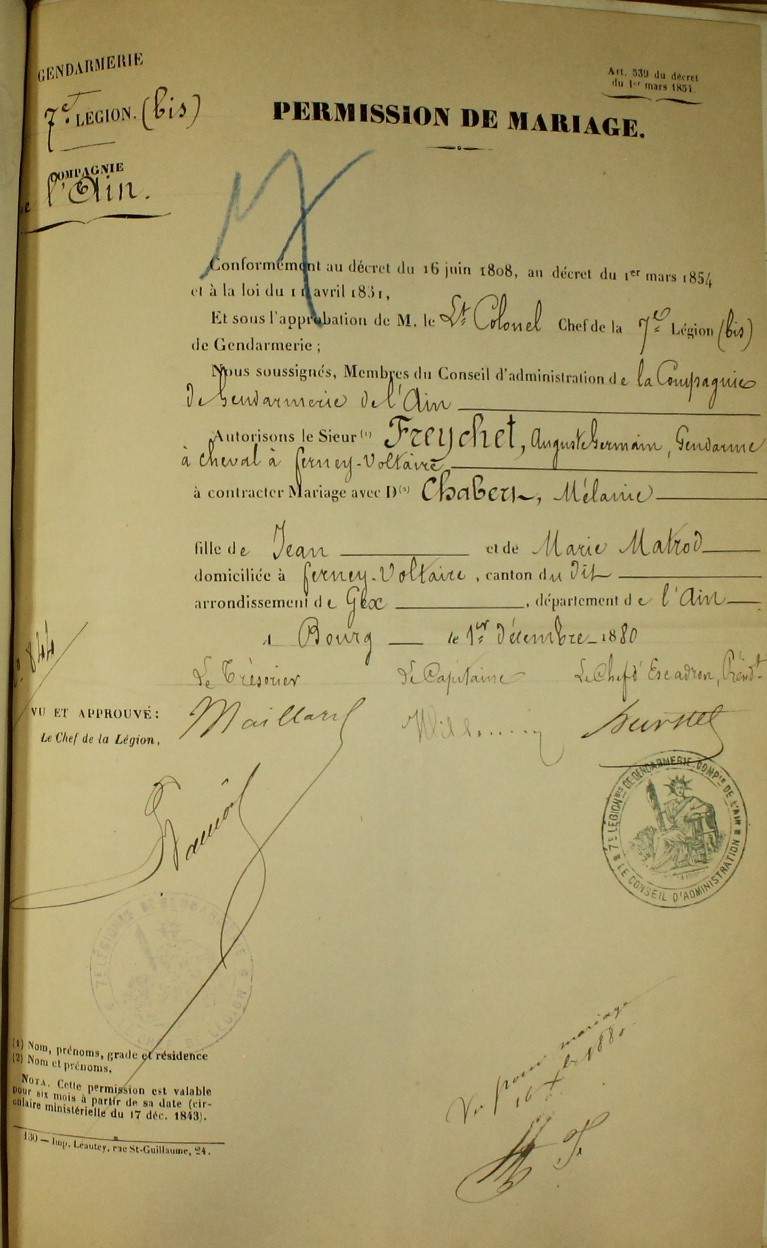 GENDARMERIE
7e. LÉGION. (bis)
COMPAGNIE
de l'Ain.
Art. 539 du décret
du 1er mars 1854.
PERMISSION DE MARIAGE.
Conformément au décret du 16 juin 1808, au décret du 1er mars 1854
et à la loi du 11 avril 1831,
Et sous l'approbation de M. le Lt. Colonel Chef de la 7e Légion (bis)
de Gendarmerie ;
Nous soussignés, Membres du Conseil d'administration de la Compagnie
de Gendarmerie de l'Ain
Autorisons le Sieur (1) Freychet, Auguste Germain, Gendarme
à cheval à ferney-Voltaire
à contracter Mariage avec D(2) Chabert, Mélanie
fille de Jean et de Marie Matrod
domiciliée à ferney-Voltaire, canton du dit
arrondissement de Gex, département de l'Ain
A Bourg le 1er décembre 1880
Le Trésorier Le Capitaine Le Chef d'Escadron, Présidt.
N° 844
VU ET APPROUVÉ :
Le Chef de la Légion,
Maillard
7e LÉGION BIS DE GENDARMERIE COMPIE DE L'AIN
LE CONSEIL D'ADMINISTRATION
(1) Nom, prénoms, grade et résidence
(2) Nom et prénoms.
NOTA. Cette permission est valable
pour six mois à partir de sa date (cir-
culaire ministérielle du 17 déc. 1843).
130 — Imp. Léautey, rue St-Guillaume, 24.
Vu pour mariage